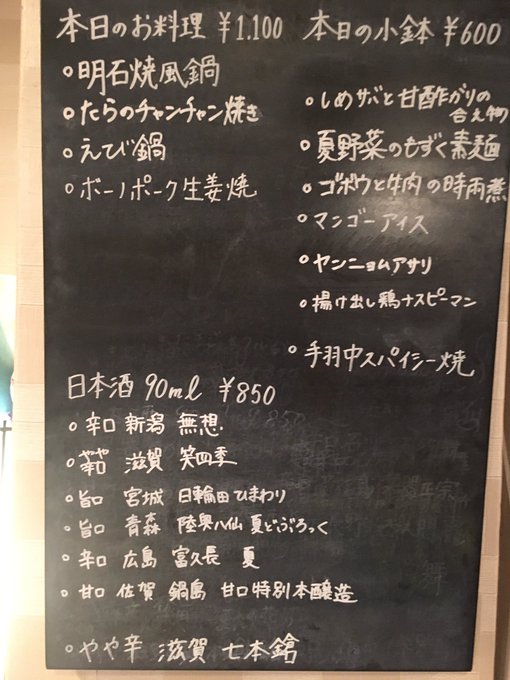 本日のお料理 ¥1.100
・明石焼風鍋
・たらのチャンチャン焼き
・えび鍋
・ボーノポーク生姜焼
本日の小鉢 ¥600
・しめサバと甘酢がりの
合え物
・夏野菜のもずく素麺
・ゴボウと牛肉の時雨煮
・マンゴーアイス
・ヤンニョムアサリ
・揚げ出し鶏ナスピーマン
・手羽中スパイシー焼
日本酒 90ml ¥850
・辛口 新潟 無想
・やや辛口 滋賀 笑四季
・旨口 宮城 日輪田ひまわり
・旨口 青森 陸奥八仙 夏どぶろっく
・辛口 広島 富久長 夏
・甘口 佐賀 鍋島 甘口特別本醸造
・やや辛 滋賀 七本鎗